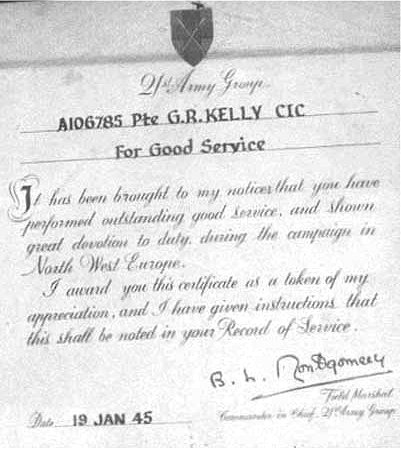 21st Army Group
A106785 Pte G.R. KELLY CIC
For Good Service
It has been brought to my notice that you have
performed outstanding good service, and shown
great devotion to duty, during the campaign in
North West Europe.
I award you this certificate as a token of my
appreciation, and I have given instructions that
this shall be noted in your Record of Service.
B. L. Montgomery
Field Marshal
Commander in Chief, 21st Army Group
Date 19 JAN 45